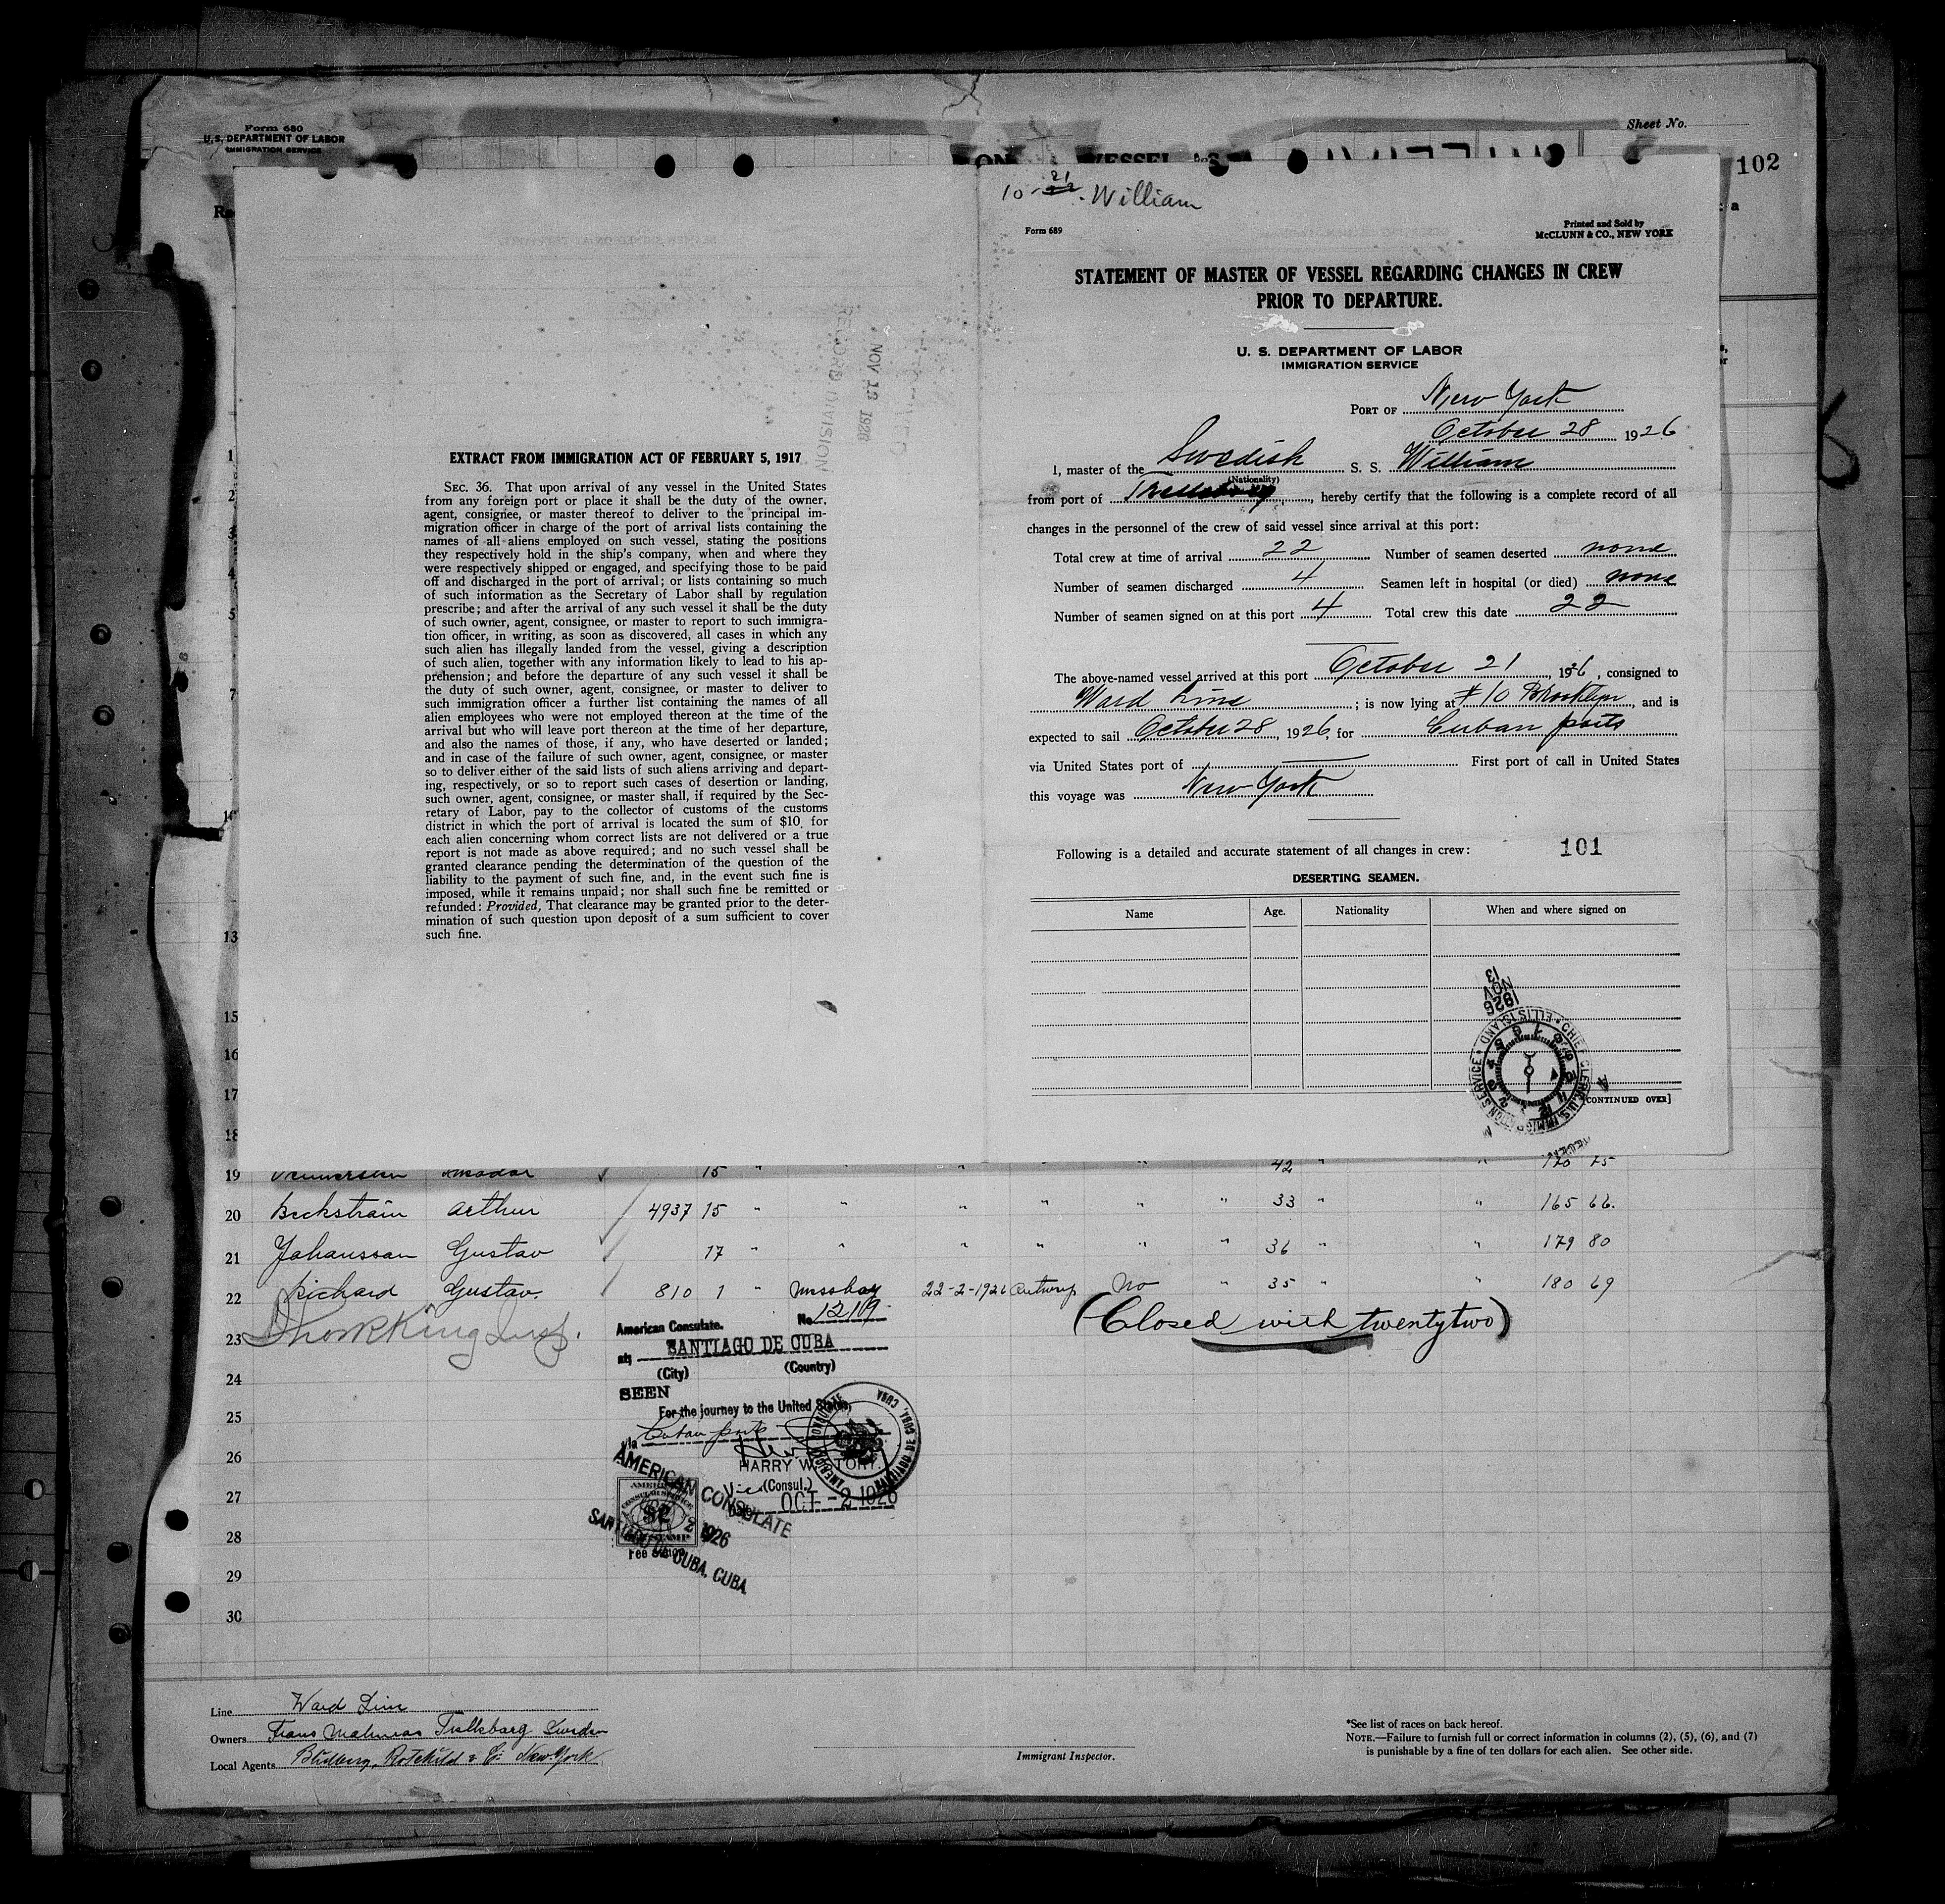 Form 680
U. S. DEPARTMENT OF LABOR
IMMIGRATION SERVICE
Sheet No.
102
ON VESSEL
10-21 William
Form 689
Printed and Sold by
McCLUNN & CO., NEW YORK
STATEMENT OF MASTER OF VESSEL REGARDING CHANGES IN CREW
PRIOR TO DEPARTURE.
U. S. DEPARTMENT OF LABOR
IMMIGRATION SERVICE
PORT OF New York
October 28 1926
I, master of the Swedish S. S. William
(Nationality)
from port of Trelleborg, hereby certify that the following is a complete record of all
changes in the personnel of the crew of said vessel since arrival at this port:
Total crew at time of arrival 22 Number of seamen deserted none
Number of seamen discharged 4 Seamen left in hospital (or died) none
Number of seamen signed on at this port 4 Total crew this date 22
The above-named vessel arrived at this port October 21, 1926, consigned to
Ward Line; is now lying at #10 Brooklyn, and is
expected to sail October 28, 1926, for Cuban ports
via United States port of First port of call in United States
this voyage was New York
Following is a detailed and accurate statement of all changes in crew: 101
DESERTING SEAMEN.
Name Age. Nationality When and where signed on
1926
NOV
13
CHIEF CLERK, U. S. IMMIGRATION SERVICE, ELLIS ISLAND
[CONTINUED OVER]
RECORD DIVISION
NOV 13 1926
EXTRACT FROM IMMIGRATION ACT OF FEBRUARY 5, 1917
SEC. 36. That upon arrival of any vessel in the United States
from any foreign port or place it shall be the duty of the owner,
agent, consignee, or master thereof to deliver to the principal im-
migration officer in charge of the port of arrival lists containing the
names of all aliens employed on such vessel, stating the positions
they respectively hold in the ship's company, when and where they
were respectively shipped or engaged, and specifying those to be paid
off and discharged in the port of arrival; or lists containing so much
of such information as the Secretary of Labor shall by regulation
prescribe; and after the arrival of any such vessel it shall be the duty
of such owner, agent, consignee, or master to report to such immigra-
tion officer, in writing, as soon as discovered, all cases in which any
such alien has illegally landed from the vessel, giving a description
of such alien, together with any information likely to lead to his ap-
prehension; and before the departure of any such vessel it shall be
the duty of such owner, agent, consignee, or master to deliver to
such immigration officer a further list containing the names of all
alien employees who were not employed thereon at the time of the
arrival but who will leave port thereon at the time of her departure,
and also the names of those, if any, who have deserted or landed;
and in case of the failure of such owner, agent, consignee, or master
so to deliver either of the said lists of such aliens arriving and depart-
ing, respectively, or so to report such cases of desertion or landing,
such owner, agent, consignee, or master shall, if required by the Sec-
retary of Labor, pay to the collector of customs of the customs
district in which the port of arrival is located the sum of $10 for
each alien concerning whom correct lists are not delivered or a true
report is not made as above required; and no such vessel shall be
granted clearance pending the determination of the question of the
liability to the payment of such fine, and, in the event such fine is
imposed, while it remains unpaid; nor shall such fine be remitted or
refunded: Provided, That clearance may be granted prior to the deter-
mination of such question upon deposit of a sum sufficient to cover
such fine.
1
2
3
4
5
7
10
13
15
16
17
18
19 15 " 42 "
20 Beckstrain Arthur 4937 15 " " " " " " 33 " " 165 66.
21 Johansson Gustav 17 " " " " " " 36 " " 179 80
22 Richard Gustav. 810 1 " Messboy 22-2-1926 Antwerp No " 35 " " 180 69
(Closed with twentytwo)
23
24
25
26
27
28
29
30
American Consulate. No. 1219
at SANTIAGO DE CUBA
(City) (Country)
SEEN
For the journey to the United States,
via Cuban ports
HARRY W. STORY.
Vice (Consul.)
OCT - 2 1926
AMERICAN CONSULATE
SANTIAGO DE CUBA, CUBA
2 1926
AMERICAN CONSULATE SANTIAGO DE CUBA, CUBA
AMERICAN
CONSULAR SERVICE
$2
FEE STAMP
Fee stamp
Line Ward Line
Owners Frans Malmros Trelleborg Sweden
Local Agents Blidberg, Rotchild & Co New York
Immigrant Inspector.
*See list of races on back hereof.
NOTE.—Failure to furnish full or correct information in columns (2), (5), (6), and (7)
is punishable by a fine of ten dollars for each alien. See other side.